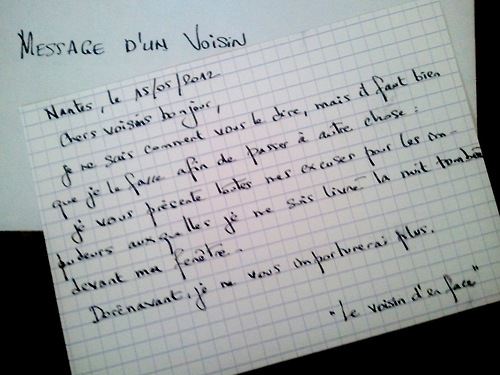 MESSAGE D'UN VOISIN
Nantes, le 15/05/2012
Chers voisins bonjour,
je ne sais comment vous le dire, mais il faut bien
que je le fasse afin de passer à autre chose :
je vous présente toutes mes excuses pour les im-
pudeurs auxquelles je me suis livré la nuit tombée
devant ma fenêtre.
Dorénavant, je ne vous importunerai plus.
"Le voisin d'en face"